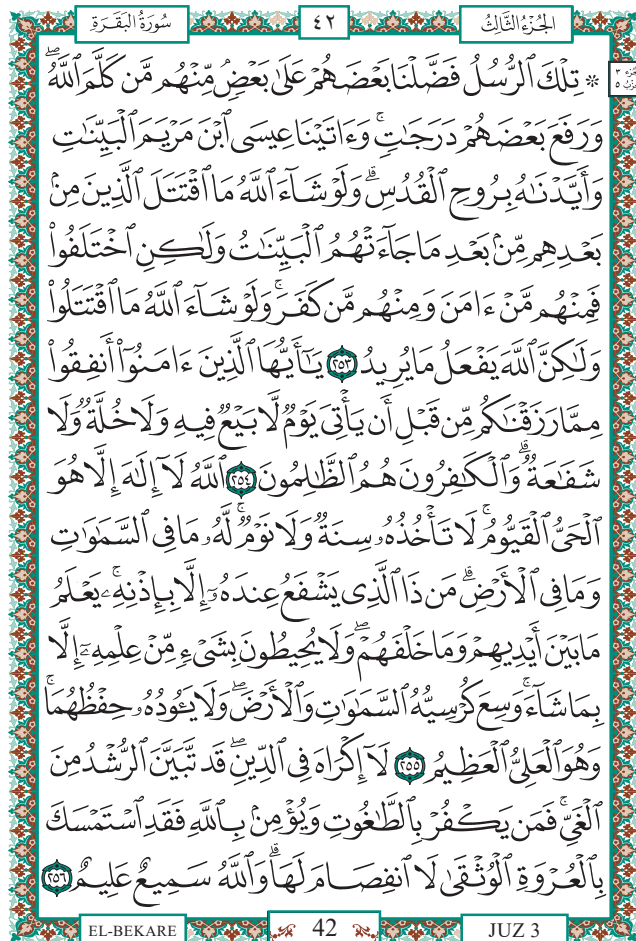 سُورَةُ الْبَقَرَةِ ٤٢ الجُزْءُ الثَّالِثُ
۞ تِلْكَ ٱلرُّسُلُ فَضَّلْنَا بَعْضَهُمْ عَلَىٰ بَعْضٍۘ مِّنْهُم مَّن كَلَّمَ ٱللَّهُۖ
وَرَفَعَ بَعْضَهُمْ دَرَجَٰتٍۚ وَءَاتَيْنَا عِيسَى ٱبْنَ مَرْيَمَ ٱلْبَيِّنَٰتِ
وَأَيَّدْنَٰهُ بِرُوحِ ٱلْقُدُسِۗ وَلَوْ شَآءَ ٱللَّهُ مَا ٱقْتَتَلَ ٱلَّذِينَ مِنۢ
بَعْدِهِم مِّنۢ بَعْدِ مَا جَآءَتْهُمُ ٱلْبَيِّنَٰتُ وَلَٰكِنِ ٱخْتَلَفُوا۟
فَمِنْهُم مَّنْ ءَامَنَ وَمِنْهُم مَّن كَفَرَۚ وَلَوْ شَآءَ ٱللَّهُ مَا ٱقْتَتَلُوا۟
وَلَٰكِنَّ ٱللَّهَ يَفْعَلُ مَا يُرِيدُ ٢٥٣ يَٰٓأَيُّهَا ٱلَّذِينَ ءَامَنُوٓا۟ أَنفِقُوا۟
مِمَّا رَزَقْنَٰكُم مِّن قَبْلِ أَن يَأْتِىَ يَوْمٌ لَّا بَيْعٌ فِيهِ وَلَا خُلَّةٌ وَلَا
شَفَٰعَةٌۗ وَٱلْكَٰفِرُونَ هُمُ ٱلظَّٰلِمُونَ ٢٥٤ ٱللَّهُ لَآ إِلَٰهَ إِلَّا هُوَ
ٱلْحَىُّ ٱلْقَيُّومُۚ لَا تَأْخُذُهُۥ سِنَةٌ وَلَا نَوْمٌۚ لَّهُۥ مَا فِى ٱلسَّمَٰوَٰتِ
وَمَا فِى ٱلْأَرْضِۗ مَن ذَا ٱلَّذِى يَشْفَعُ عِندَهُۥٓ إِلَّا بِإِذْنِهِۦۚ يَعْلَمُ
مَا بَيْنَ أَيْدِيهِمْ وَمَا خَلْفَهُمْۖ وَلَا يُحِيطُونَ بِشَىْءٍ مِّنْ عِلْمِهِۦٓ إِلَّا
بِمَا شَآءَۚ وَسِعَ كُرْسِيُّهُ ٱلسَّمَٰوَٰتِ وَٱلْأَرْضَۖ وَلَا يَـُٔودُهُۥ حِفْظُهُمَاۚ
وَهُوَ ٱلْعَلِىُّ ٱلْعَظِيمُ ٢٥٥ لَآ إِكْرَاهَ فِى ٱلدِّينِۖ قَد تَّبَيَّنَ ٱلرُّشْدُ مِنَ
ٱلْغَىِّۚ فَمَن يَكْفُرْ بِٱلطَّٰغُوتِ وَيُؤْمِنۢ بِٱللَّهِ فَقَدِ ٱسْتَمْسَكَ
بِٱلْعُرْوَةِ ٱلْوُثْقَىٰ لَا ٱنفِصَامَ لَهَاۗ وَٱللَّهُ سَمِيعٌ عَلِيمٌ ٢٥٦
EL-BEKARE 42 JUZ 3